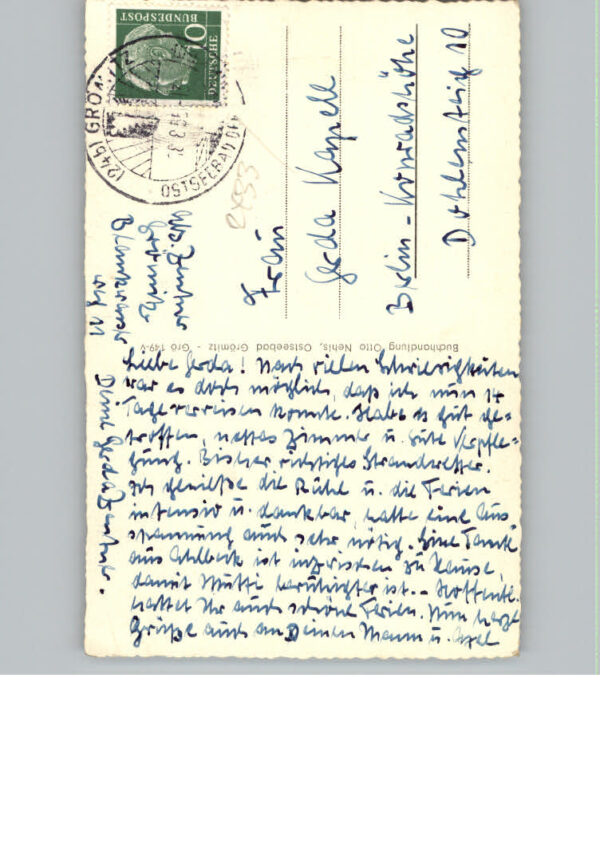 DEUTSCHE
BUNDESPOST
10
(24b) GRÖMITZ
OSTSEEBAD
Abs. Zentner
Grömitz
Blankwasser
weg 11
Frau
Gerda Kapell
Berlin-Konradshöhe
Dohlensteig 10
Buchhandlung Otto Nehls, Ostseebad Grömitz - Grö 149-V
Liebe Gerda! Nach vielen Schwierigkeiten
war es doch möglich, daß ich nun 14
Tage verreisen konnte. Habe es gut ge-
troffen, nettes Zimmer u. gute Verpfle-
gung. Bisher richtiges Strandwetter.
Ich genieße die Ruhe u. die Ferien
intensiv u. dankbar, hatte eine Aus-
spannung auch sehr nötig. Eine Tante
aus Ahlbeck ist inzwischen zu Hause,
damit Mutti beruhigter ist. - Hoffentl.
hattet Ihr auch schöne Ferien. Nun herzl.
Grüße auch an Deinen Mann u. Axel
Deine Gerda Zentner.